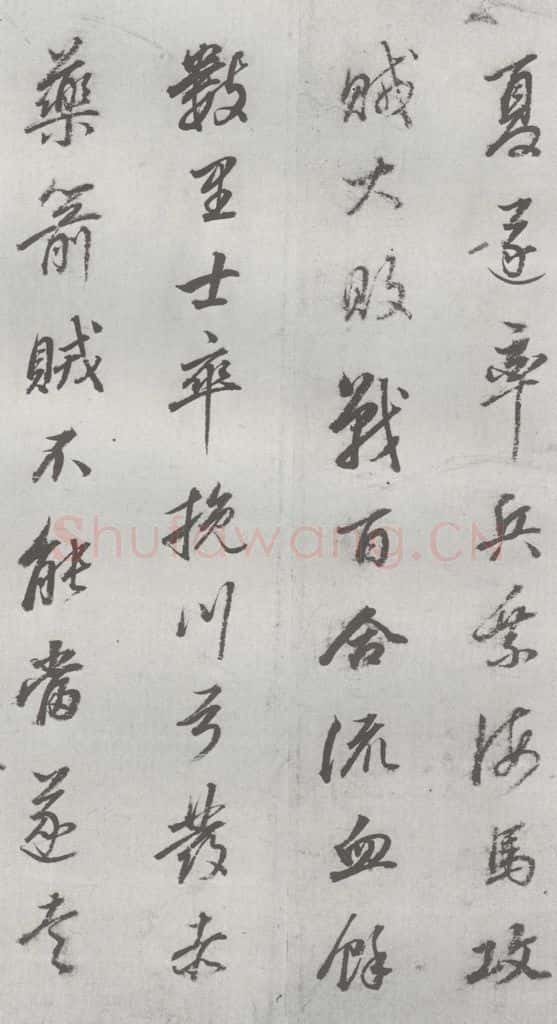 夏遂率兵乘海馬攻
賊大敗戰百合流血餘
數里士卒挽川弓發赤
藥箭賊不能當遂走
Shufawang.CN